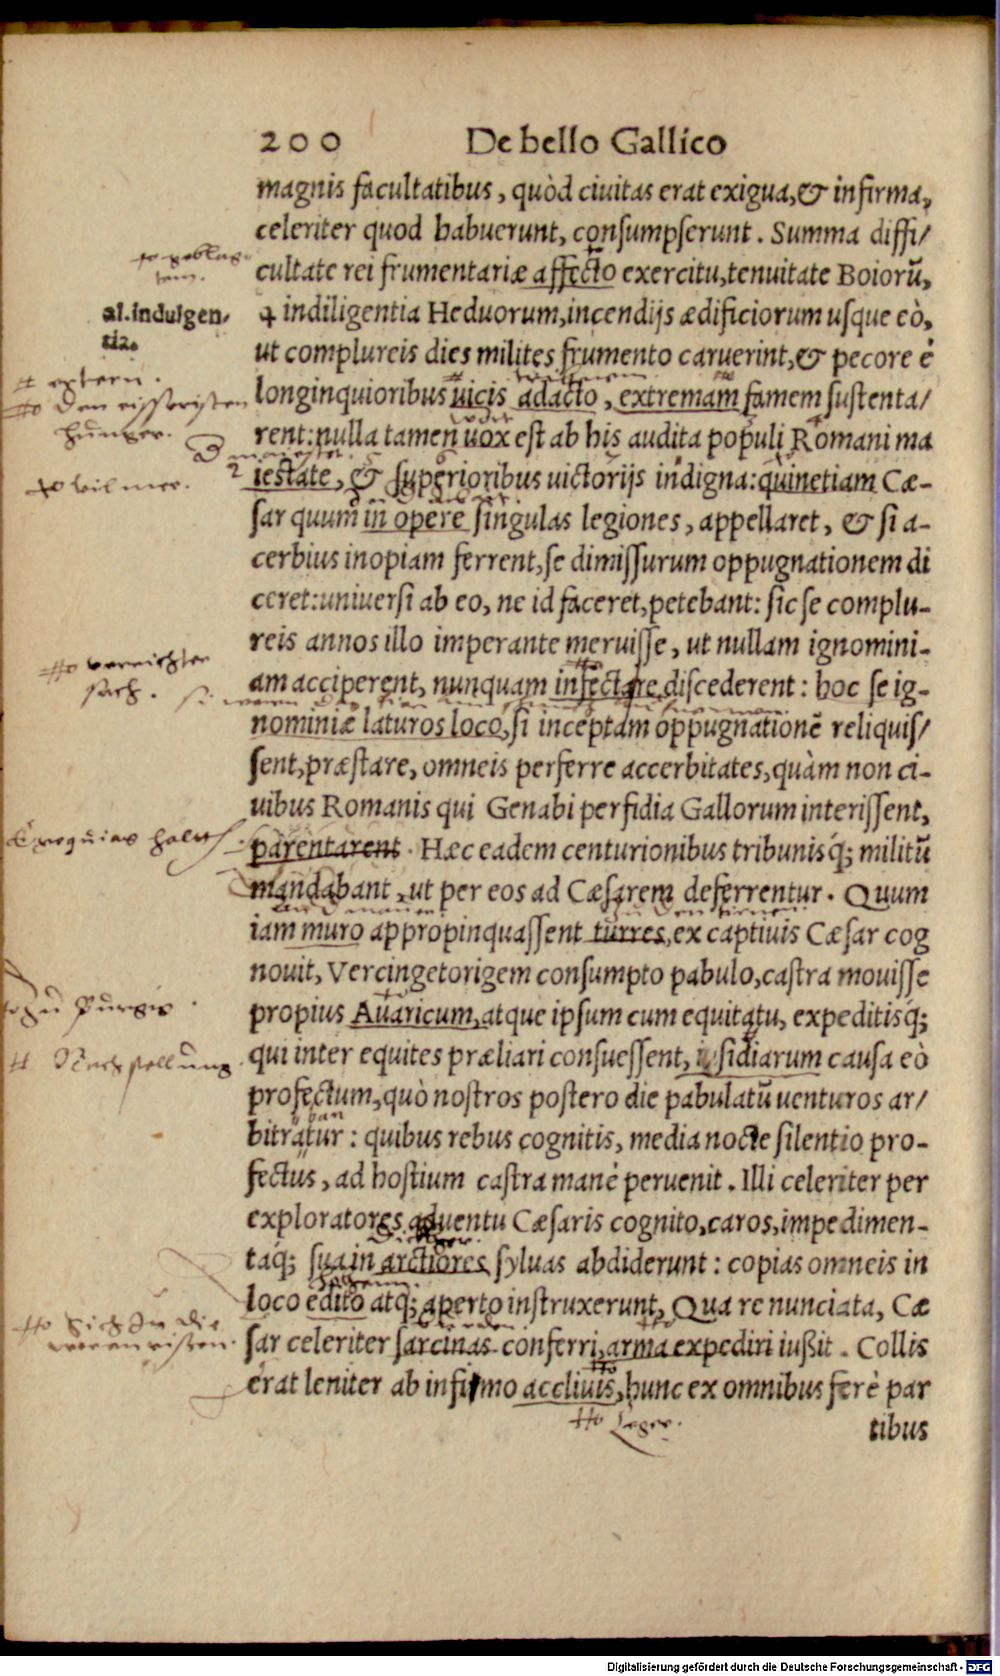 200 De bello Gallico
magnis facultatibus, quòd ciuitas erat exigua, & infirma,
celeriter quod habuerunt, consumpserunt. Summa diffi/
cultate rei frumentariæ affecto exercitu, tenuitate Boiorũ,
al. indulgen-
tia.
indiligentia Heduorum, incendijs ædificiorum usque eò,
ut complureis dies milites frumento caruerint, & pecore è
extern.
longinquioribus uicis adacto, extremam famem sustenta/
den eissersten
hunger.
rent: nulla tamen uox est ab his audita populi Romani ma
vil mer.
iestate, & superioribus uictorijs indigna: quinetiam Cæ-
sar quum in opere singulas legiones, appellaret, & si a-
cerbius inopiam ferrent, se dimissurum oppugnationem di
ceret: uniuersi ab eo, ne id faceret, petebant: sic se complu-
reis annos illo imperante meruisse, ut nullam ignomini-
verrichter
sach.
am acciperent, nunquam infectare discederent: hoc se ig-
nominiæ laturos loco, si inceptam oppugnationẽ reliquis/
sent, præstare, omneis perferre accerbitates, quàm non ci-
uibus Romanis qui Genabi perfidia Gallorum interissent,
Exequias halten
parentarent. Hæc eadem centurionibus tribunisq́; militũ
mandabant, ut per eos ad Cæsarem deferrentur. Quum
iam muro appropinquassent turres, ex captiuis Cæsar cog
nouit, Vercingetorigem consumpto pabulo, castra mouisse
zu Purgis
propius Auaricum, atque ipsum cum equitatu, expeditisq́;
Nachstellung
qui inter equites præliari consuessent, insidiarum causa eò
profectum, quò nostros postero die pabulatũ uenturos ar/
bitratur: quibus rebus cognitis, media nocte silentio pro-
fectus, ad hostium castra manè peruenit. Illi celeriter per
exploratores aduentu Cæsaris cognito, caros, impedimen-
taq́; sua in arctiores syluas abdiderunt: copias omneis in
loco edito atq; aperto instruxerunt, Qua re nunciata, Cæ
sich zu die
sar celeriter sarcinas conferri, arma expediri iußit. Collis
erat leniter ab infimo accliuis, hunc ex omnibus ferè par
Leger.
tibus
Digitalisierung gefördert durch die Deutsche Forschungsgemeinschaft - DFG